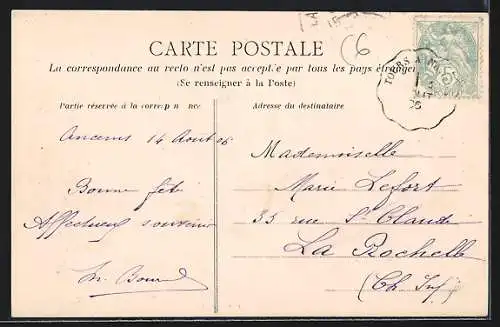 CARTE POSTALE
La correspondance au recto n'est pas acceptée par tous les pays étrangers
(Se renseigner à la Poste)
Partie réservée à la correspondance
Adresse du destinataire
C6
TOURS A
Ancenis 14 Aout 06
Bonne fête
Affectueux souvenir
Mademoiselle
Marie Lefort
35 rue St Claude
La Rochelle
(Ch Inf)